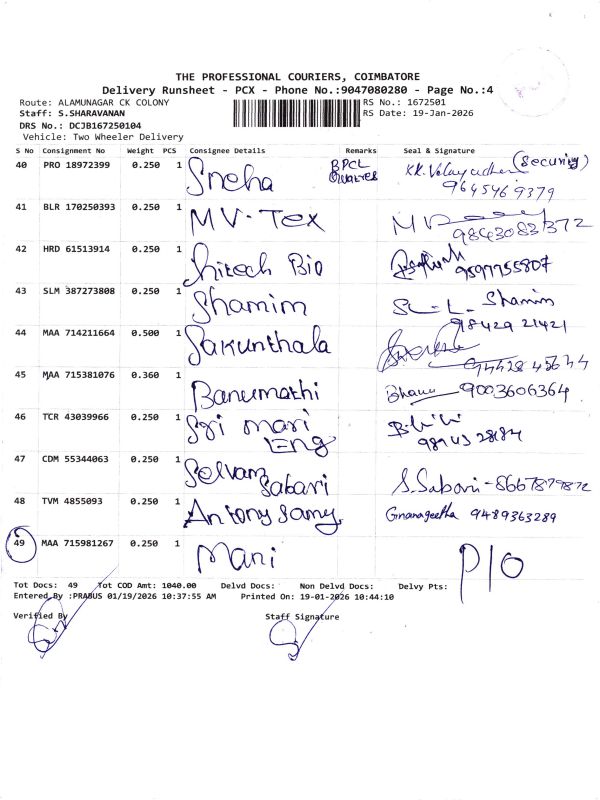 THE PROFESSIONAL COURIERS, COIMBATORE
Delivery Runsheet - PCX - Phone No.:9047080280 - Page No.:4
Route: ALAMUNAGAR CK COLONY RS No.: 1672501
Staff: S.SHARAVANAN RS Date: 19-Jan-2026
DRS No.: DCJB167250104
Vehicle: Two Wheeler Delivery
S No Consignment No Weight PCS Consignee Details Remarks Seal & Signature
40 PRO 18972399 0.250 1 Sneha BPCL KK. Velayudhan (Security)
9645469379
41 BLR 170250393 0.250 1 MV. Tex
9843083372
42 HRD 61513914 0.250 1 Hitech Bio 9597755807
43 SLM 387273808 0.250 1 Shamim Shamim
98429 21421
44 MAA 714211664 0.500 1 Sakunthala
45 MAA 715381076 0.360 1 Banumathi Bhanu 9003606364
46 TCR 43039966 0.250 1 Sri Mari
Eng
47 CDM 55344063 0.250 1 Selvam
Sabari S.Sabari - 8667879872
48 TVM 4855093 0.250 1 Antony Samy Gnanageetha 9489363289
49 MAA 715981267 0.250 1 Mani P/O
Tot Docs: 49 Tot COD Amt: 1040.00 Delvd Docs: Non Delvd Docs: Delvy Pts:
Entered By :PRABUS 01/19/2026 10:37:55 AM Printed On: 19-01-2026 10:44:10
Verified By Staff Signature